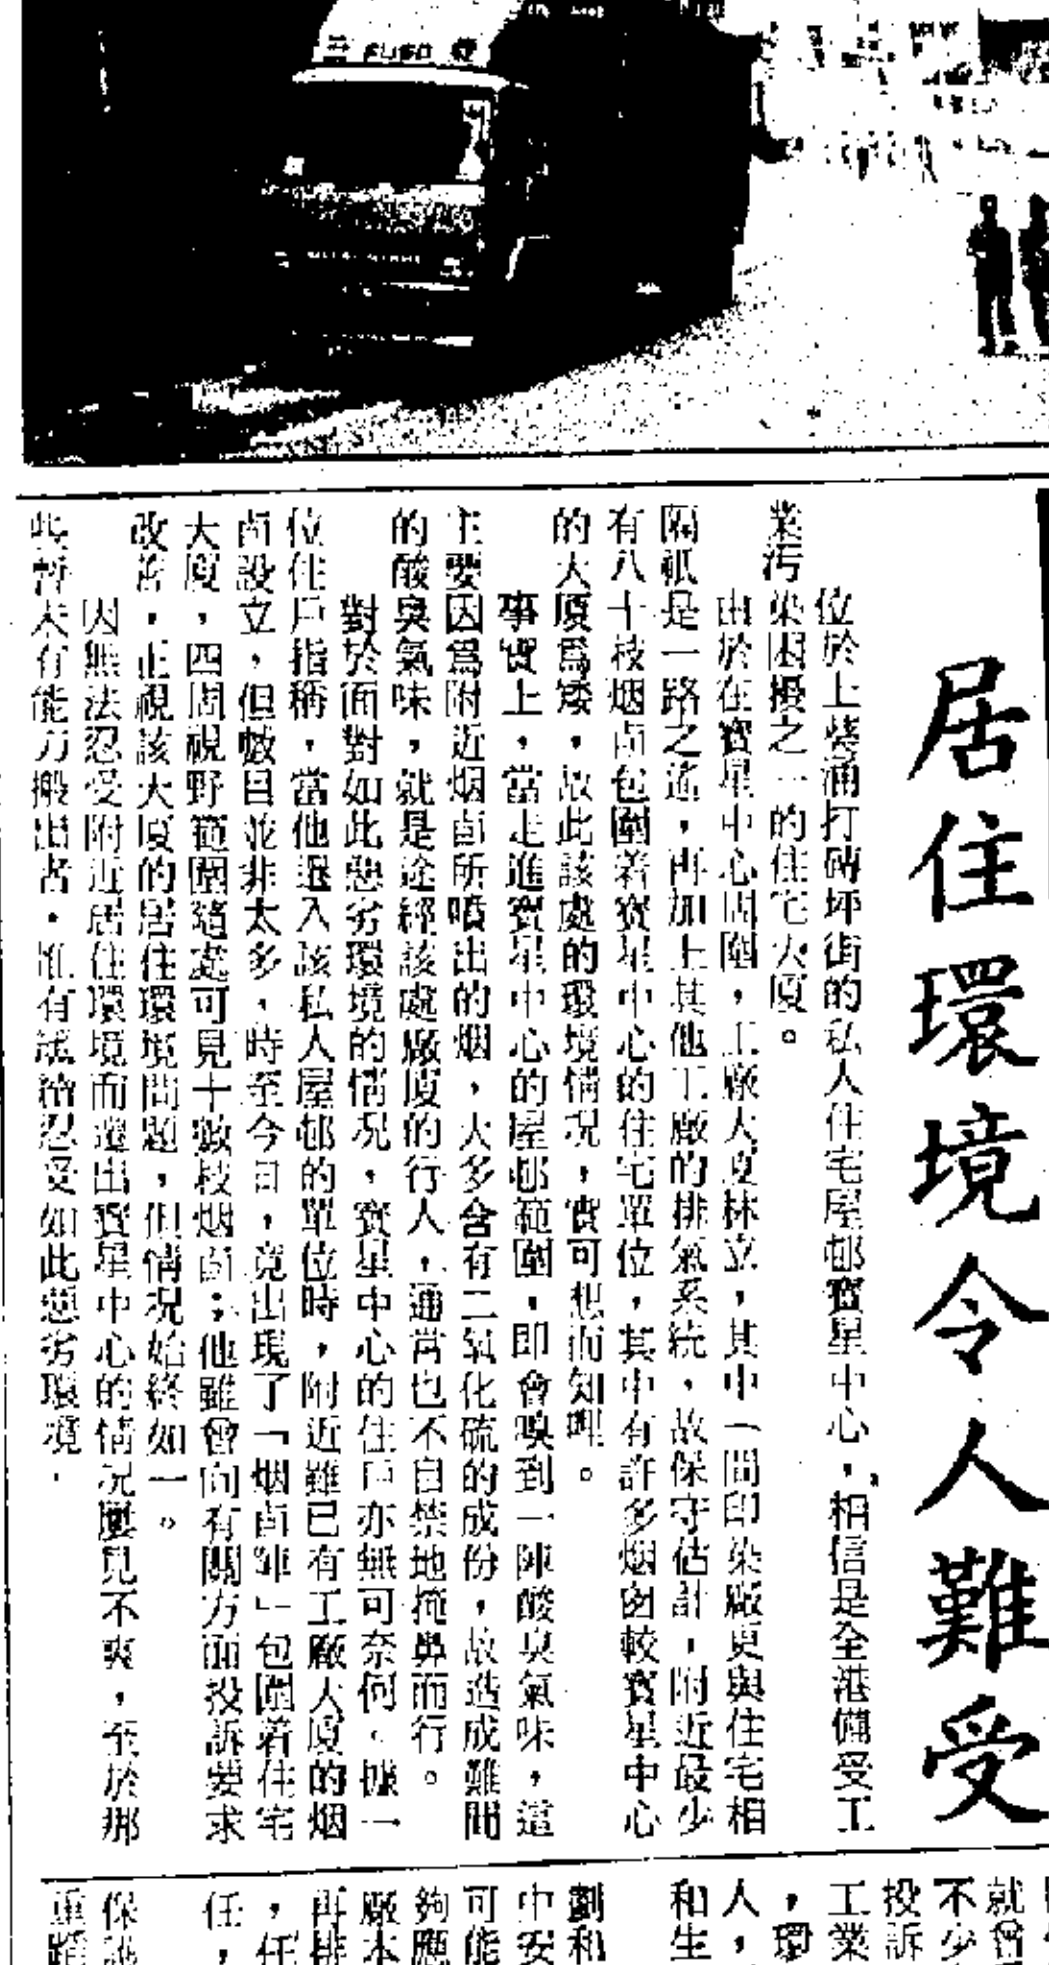 FUSO
居住環境令人難受
位於上葵涌打磚坪街的私人住宅屋邨寶星中心，相信是全港備受工
業污染困擾之一的住宅大廈。
由於在寶星中心周圍，工廠大廈林立，其中一間印染廠更與住宅相
隔祇是一路之遙，再加上其他工廠的排氣系統，故保守估計，附近最少
有八十枝烟卤包圍着寶星中心的住宅單位，其中有許多烟囱較寶星中心
的大廈爲矮，故此該處的環境情况，實可想而知哩。
事實上，當走進寶星中心的屋邨範圍，即會嗅到一陣酸臭氣味，這
主要因爲附近烟卤所噴出的烟，大多含有二氧化硫的成份，故造成難聞
的酸臭氣味，就是途經該處廠廈的行人，通常也不自禁地掩鼻而行。
對於面對如此惡劣環境的情况，寶星中心的住戶亦無可奈何。據一
位住戶指稱，當他遷入該私人屋邨的單位時，附近雖已有工廠大廈的烟
卤設立，但數目並非太多，時至今日，竟出現了「烟卤陣」包圍着住宅
大廈，四周視野範圍隨處可見十數枝烟卤；他雖曾向有關方面投訴要求
改善，正視該大廈的居住環境問題，但情况始終如一。
因無法忍受附近居住環境而遷出寶星中心的情况屢見不爽，至於那
此暫未有能力搬出者，惟有繼續忍受如此惡劣環境。
就曾
不少
投訴
工業
，環
人，
和生
劃和
中安
可能
夠應
廠本
再排
，任
任，
保護
重